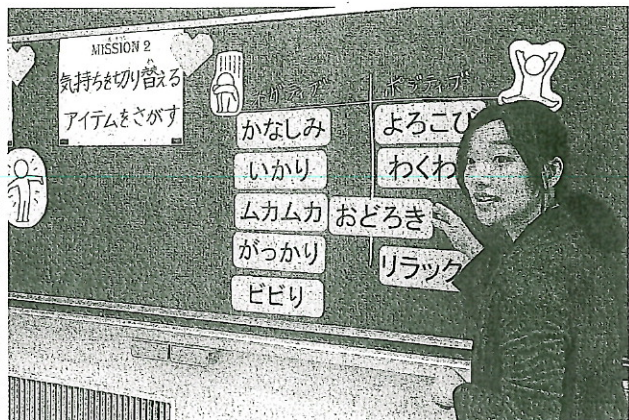 MISSION 2
気持ちを切り替える
アイテムをさがす
ネガティブ
ポジティブ
かなしみ
いかり
ムカムカ
がっかり
ビビり
よろこび
わくわ
おどろき
リラック